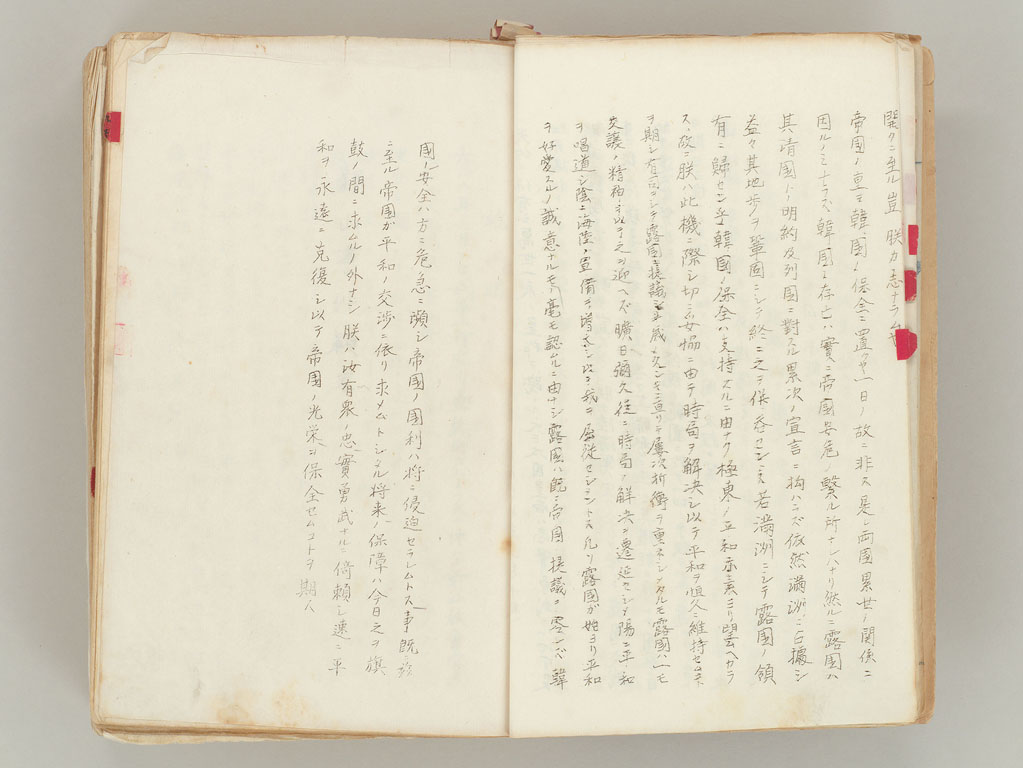 開クニ至ル豈朕カ志ナラムヤ
帝國ノ重ヲ韓國ノ保全ニ置クヤ一日ノ故ニ非ス是レ両國累世ノ関係ニ
因ルノミナラズ韓国ノ存亡ハ實ニ帝国安危ノ繋ル所ナレハナリ然ルニ露国ハ
其清国トノ明約及列国ニ對スル累次ノ宣言ニ拘ハラズ依然満洲ニ占據シ
益々其地歩ヲ鞏固ニシテ終ニ之ヲ併呑セントス若満洲ニシテ露国ノ領
有ニ歸センカ韓国ノ保全ハ支持スルニ由ナク極東ノ平和亦素ヨリ望ムヘカラ
ス故ニ朕ハ此機ニ際シ切ニ妥協ニ由テ時局ヲ解決シ以テ平和ヲ恒久ニ維持セムコトヲ
ヲ期シ有司ヲシテ露国ニ提議シ半歳ノ久シキニ亘リテ屡次折衝ヲ重ネシメタルモ露国ハ一モ
交譲ノ精神ヲ以テ之ヲ迎ヘズ曠日彌久徒ニ時局ノ解決ヲ遷延セシメ陽ニ平和
ヲ唱道シ陰ニ海陸ノ軍備ヲ増大シ以テ我ヲ屈従セシメントス凡ソ露国ガ始ヨリ平和
ヲ好愛スルノ誠意ナルモノ毫モ認ムルニ由ナシ露国ハ既ニ帝国ノ提議ヲ容レズ韓
國ノ安全ハ方ニ危急ニ瀕シ帝國ノ國利ハ将ニ侵迫セラレムトス事既ニ茲
ニ至ル帝国ガ平和ノ交渉ニ依リ求メムトシタル将来ノ保障ハ今日之ヲ旗
鼓ノ間ニ求ムルノ外ナシ朕ハ汝有衆ノ忠實勇武ナルニ倚頼シ速ニ平
和ヲ永遠ニ克復シ以テ帝国ノ光栄ヲ保全セムコトヲ期ス